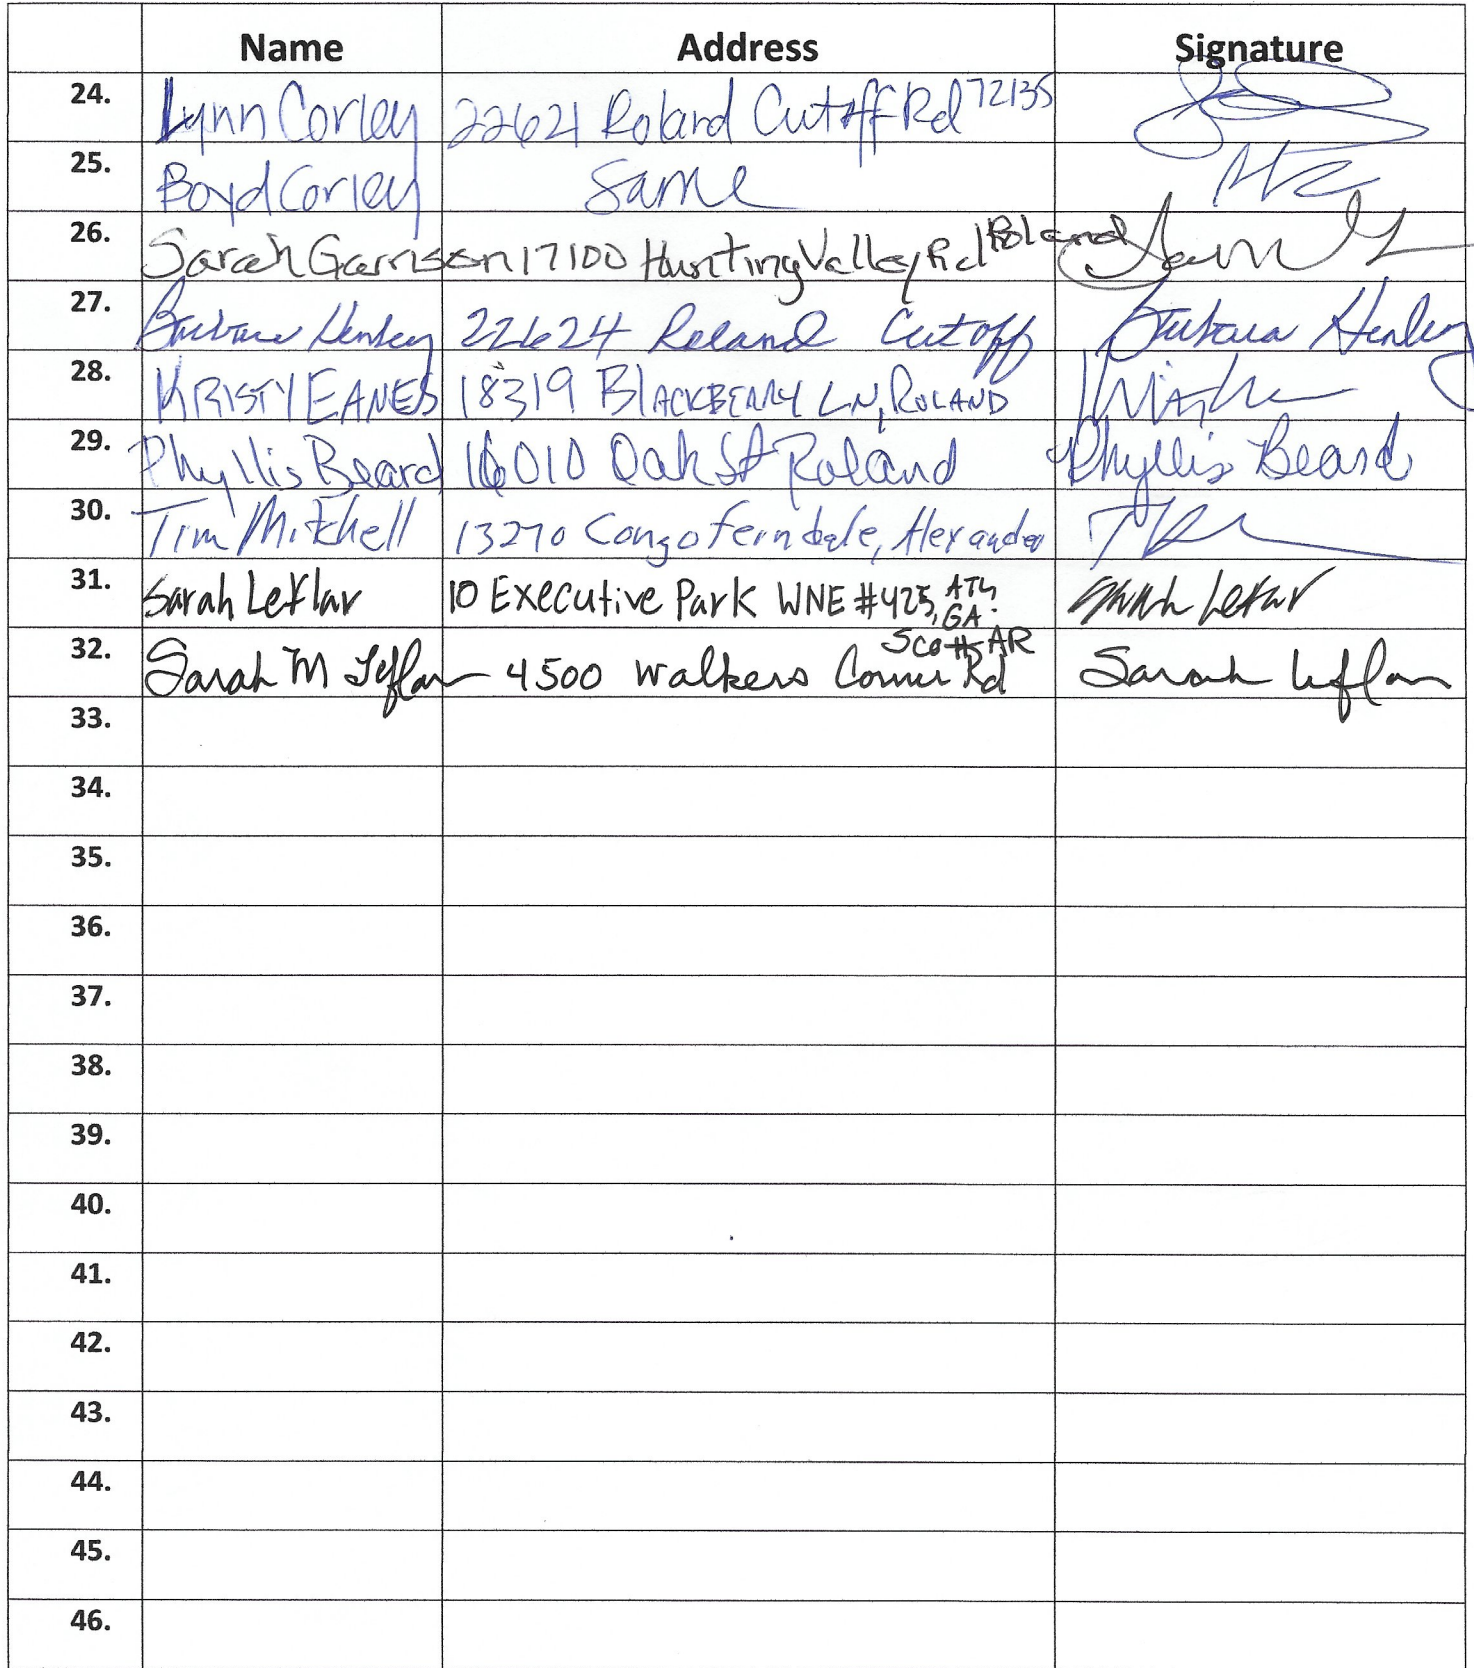 Name Address Signature
24. Lynn Corley 22621 Roland Cutoff Rd 72135
25. Boyd Corley Same
26. Sarah Garrison 17100 Hunting Valley Rd Roland
27. Barbara Henley 22624 Roland Cutoff Barbara Henley
28. KRISTY EANES 18319 BLACKBERRY LN, ROLAND
29. Phyllis Beard 16010 Oak St Roland Phyllis Beard
30. Tim Mitchell 13270 Congo Ferndale, Alexander
31. Sarah Leflar 10 Executive Park WNE #425, ATL, GA. Sarah Leflar
32. Sarah M Leflar 4500 Walkers Corner Rd Scott, AR Sarah Leflar
33.
34.
35.
36.
37.
38.
39.
40.
41.
42.
43.
44.
45.
46.